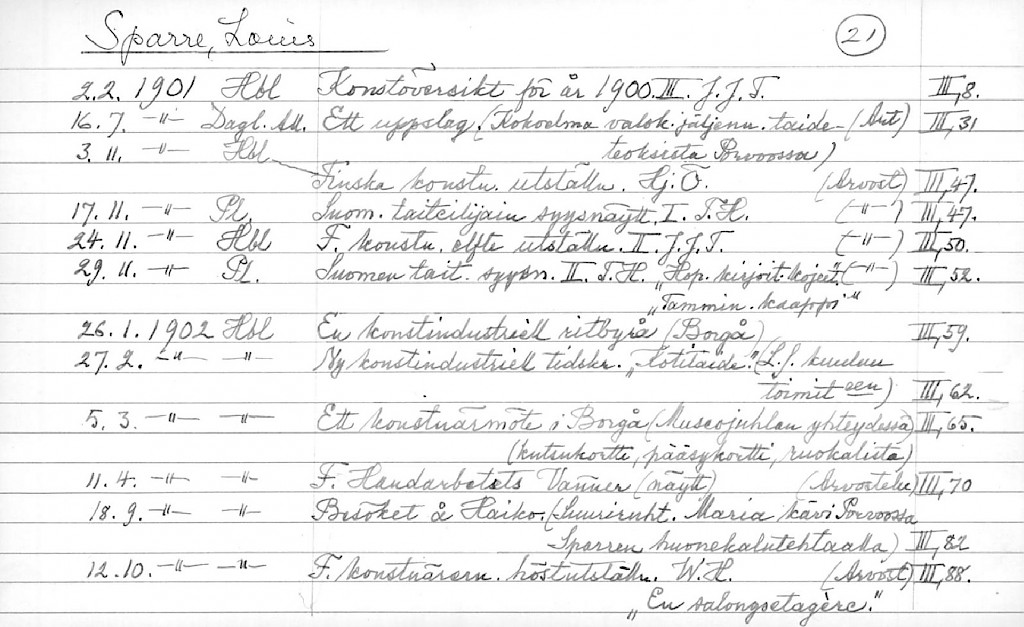 Sparre, Louis (21)
2.2. 1901 Hbl Konstöversikt för år 1900. III. J.J.T. III, 8.
16.7. -"- Dagl. All. Ett uppslag. (Kokoelma valok. jäljenn. taide- (Art) III, 31
3.11. -"- Hbl teoksista Porvoossa)
Finska konstn. utställn. Hj. Ö. (Arvost) III, 47.
17.11. -"- Pl. Suom. taiteilijain syysnäytt. I. T.H. (-"-) III, 47.
24.11. -"- Hbl F. konstn. elfte utställn. II. J.J.T. (-"-) III, 50.
29.11. -"- Pl. Suomen tait. syysn. II. T.H. „Hop. kirjoit. kojeet." (-"-) III, 52.
„Tammin. kaappi"
26.1. 1902 Hbl En konstindustriell ritbyrå (Borgå) III, 59.
27.2. -"- -"- Ny konstindustriell tidskr. „Kotitaide." (L.S. kuuluu
toimit een) III, 62.
5.3. -"- -"- Ett konstnärmöte i Borgå (Museojuhlan yhteydessä) III, 65.
(kutsukortti, pääsykortti, ruokalista)
11.4. -"- -"- F. Handarbetets Vänner (näytt) (Arvostelu) III, 70
18.9. -"- -"- Besöket å Haiko. (Suuriruht. Maria kävi Porvoossa
Sparren huonekalutehtaalla) III, 82
12.10. -"- -"- F. konstnärern. höstutställn. W.H. (Arvost) III, 88.
„En salongsetagère."